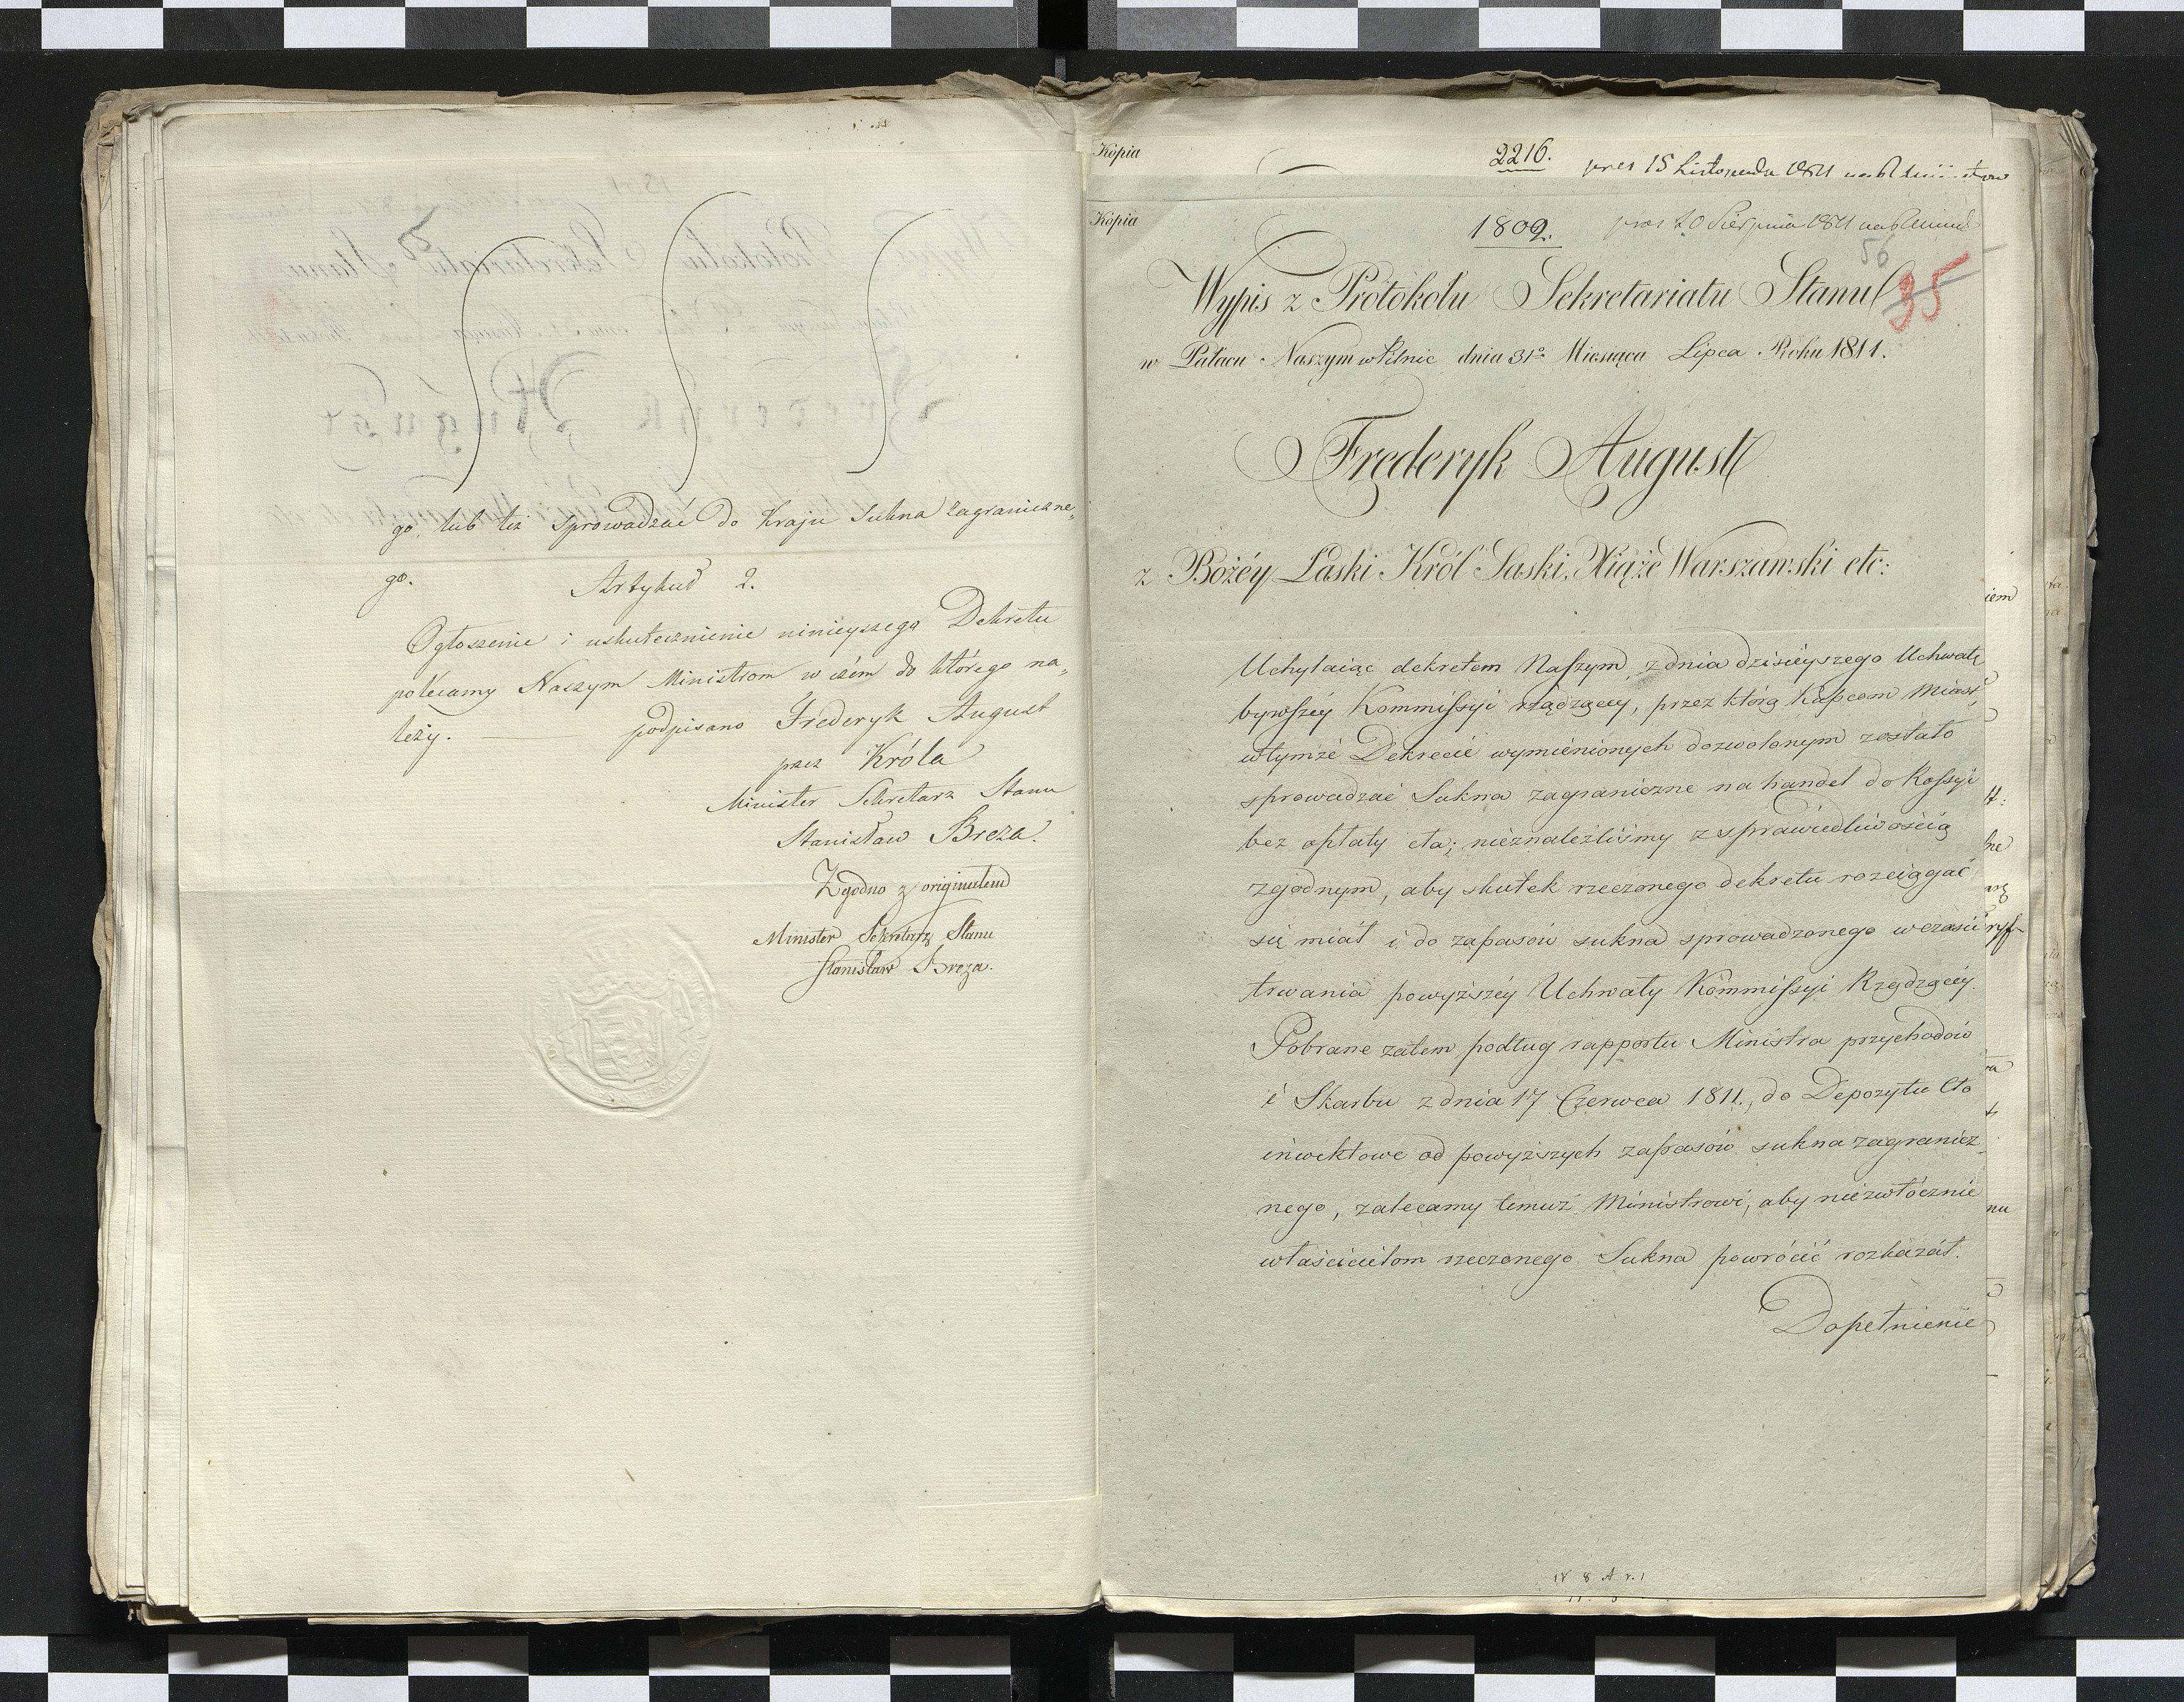 go, lub też sprowadzać do kraju sukna zagraniczne„
go.
Artykuł 2.
Ogłoszenie i uskutecznienie ninieyszego Dekretu
polecamy Naszym Ministrom w czém do którego na„
leży. podpisano Frederyk August
przez Króla
Minister Sekretarz Stanu
Stanisław Breza.
Zgodno z originałem
Minister Sekretarz Stanu
Stanisław Breza.
Kopia
2216. pres 15 Listopada 1811
Kopia
1809. pres 20 Sierpnia 1811
56
35
Wypis z Protokołu Sekretariatu Stanu
w Pałacu Naszym w Pilnic dnia 31º Miesiąca Lipca Roku 1811.
Frederyk August
z Bożéy Łaski Król Saski, Xiąże Warszawski etc:
Uchylaiąc dekretem Naszym, z dnia dzisiéyszego Uchwałę
bywszéy Kommissyi rządzącey, przez którą kupcom Miast
w tymże Dekrecie wymienionych dozwolonym zostało
sprowadzać Sukna zagraniczne na handel do Rossyi
bez opłaty cła; nieznaleźliśmy z sprawiedliwością
zgodnym, aby skutek rzeczonego dekretu rozciągać
się miał i do zapasów sukna sprowadzonego w czasie
trwania powyższéy Uchwały Kommissyi Rządzącéy.
Pobrane zatem podług rapportu Ministra przychodów
i Skarbu z dnia 17 Czerwca 1811., do Depozytu Cło
inwektowe od powyższych zapasów sukna zagranicz
nego, zalecamy temuż Ministrowi, aby niezwłócznie
właścicielom rzeczonego Sukna powrócić rozkazał.
Dopełnienie